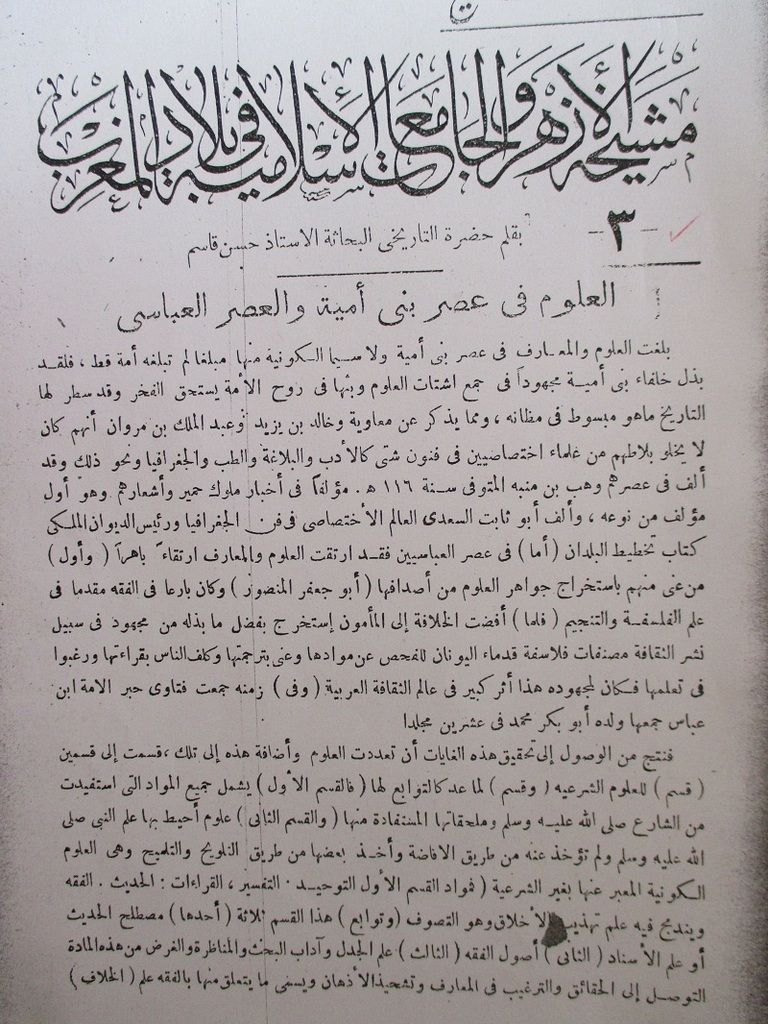 مشيخة الأزهر والجامعات الإسلامية في بلاد المغرب
- ٣ -
بقلم حضرة التاريخى البحاثة الاستاذ حسن قاسم
العلوم فى عصر بنى أمية والعصر العباسى
بلغت العلوم والمعارف فى عصر بنى أمية ولاسيما الكونية منها مبلغا لم تبلغه أمة قط ، فلقد
بذل خلفاء بنى أمية مجهوداً فى جمع اشتات العلوم وبثها فى روح الأمة يستحق الفخر وقد سطر لها
التاريخ ماهو مبسوط فى مظانه ، ومما يذكر عن معاوية وخالد بن يزيد وعبد الملك بن مروان أنهم كان
لا يخلو بلاطهم من علماء اختصاصيين فى فنون شتى كالأدب والبلاغة والطب والجغرافيا ونحو ذلك وقد
ألف فى عصرهم وهب بن منبه المتوفى سنة ١١٦ ه . مؤلفاً فى أخبار ملوك حمير وأشعارهم وهو أول
مؤلف من نوعه ، وألف أبو ثابت السعدى العالم الأختصاصى فى فن الجغرافيا ورئيس الديوان الملكى
كتاب تخطيط البلدان ( أما ) فى عصر العباسيين فقد ارتقت العلوم والمعارف ارتقاءً باهراً ( وأول )
من عنى منهم باستخراج جواهر العلوم من أصدافها ( أبو جعفر المنصور ) وكان بارعا فى الفقه مقدما فى
علم الفلسفة والتنجيم ( فلما ) أفضت الخلافة إلى المأمون إستخرج بفضل ما بذله من مجهود فى سبيل
نشر الثقافة مصنفات فلاسفة قدماء اليونان للفحص عن موادها وعنى بترجمتها وكلف الناس بقراءتها ورغبوا
فى تعلمها فكان لمجهوده هذا أثر كبير فى عالم الثقافة العربية ( وفى ) زمنه جمعت فتاوى حبر الامة ابن
عباس جمعها ولده أبو بكر محمد فى عشرين مجلدا
فنتج من الوصول إلى تحقيق هذه الغايات أن تعددت العلوم وأضافة هذه إلى تلك ، قسمت إلى قسمين
( قسم ) للعلوم الشرعيه ( وقسم ) لما عد كالتوابع لها ( فالقسم الأول ) يشمل جميع المواد التى استفيدت
من الشارع صلى الله عليه وسلم وملحقاتها المستفادة منها ( والقسم الثانى ) علوم أحيط بها علم النبى صلى
الله عليه وسلم ولم تؤخذ عنه من طريق الافاضة وأخذ بعضها من طريق التلويح والتلميح وهى العلوم
الكونية المعبر عنها بغير الشرعية ( فمواد القسم الأول التوحيد . التفسير ، القراءات : الحديث . الفقه
ويندمج فيه علم تهذيب الأخلاق وهو التصوف ( وتوابع ) هذا القسم ثلاثة ( أحدها ) مصطلح الحديث
أو علم الأسناد ( الثانى ) أصول الفقه ( الثالث ) علم الجدل وآداب البحث والمناظرة والغرض من هذه المادة
التوصل إلى الحقائق والترغيب فى المعارف وتشحيذ الأذهان ويسمى ما يتعلق منها بالفقه علم ( الخلاف )